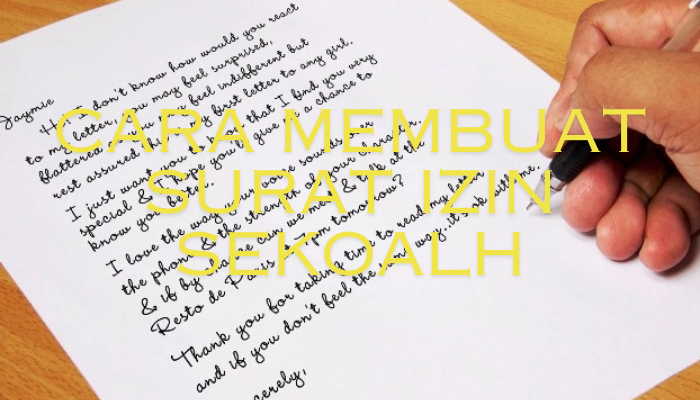 Jaymie
I don't know how would you react
to my letter, you may feel surprised,
flattered or you may feel indifferent but
rest assured first letter to any girl.
I just want you to know that I find you very
special & I hope you'll give me a chance to
know you better.
I love the way your voice sounds over
the phone & the strength of your character.
& if by chance can we meet & talk at the
Resto de Paris at 7pm tomorrow?
Thank you for taking time to read my letter
and if you don't feel the same way, it's ok with me.
cerely,
CARA MEMBUAT
SURAT IZIN
SEKOALH